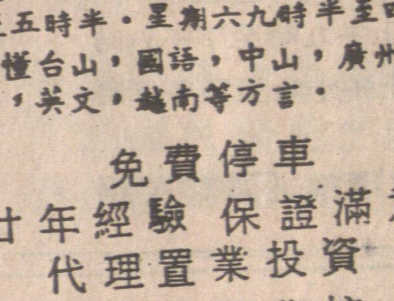 五時半。星期六九時半至
懂台山，國語，中山，廣州
，英文，越南等方言。
免費停車
廿年經驗 保證滿
代理置業投資